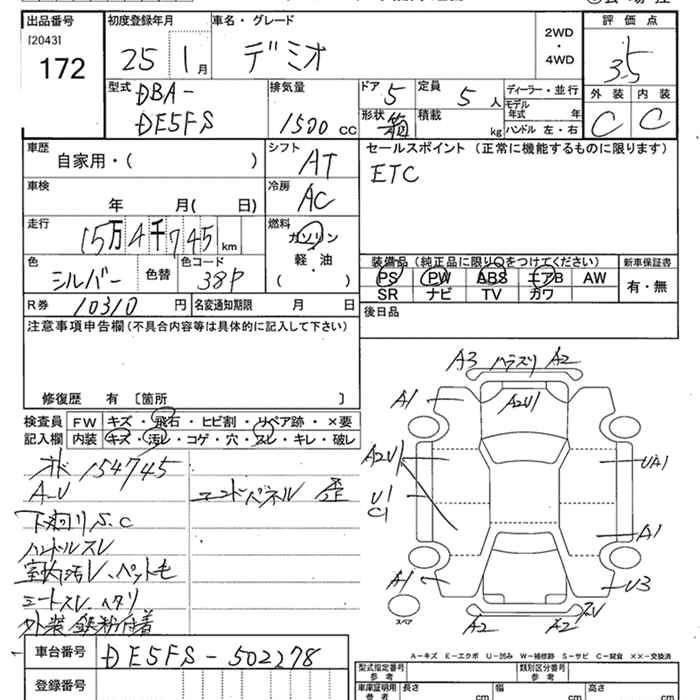 出品番号
[2043]
172
初度登録年月
25 1月
車名・グレード
デミオ
2WD
・
4WD
評価点
3.5
外装 内装
C C
型式
DBA-
DE5FS
排気量
1500 cc
ドア 5
形状 箱
定員 5人
積載 kg
ディーラー・並行
モデル年式 年
ハンドル 左・右
車歴
自家用・( )
シフト
AT
セールスポイント(正常に機能するものに限ります)
ETC
車検
年 月( 日)
冷房
AC
走行
15万4千745 km
燃料
ガソリン
軽・油
( )
色
シルバー
色替
色コード
38P
装備品(純正品に限り○をつけてください)
PS PW ABS エアB AW
SR ナビ TV カワ
新車保証書
有・無
R券 10310円
名変通知期限 月 日
後日品
注意事項申告欄(不具合内容等は具体的に記入して下さい)
修復歴 有 [箇所 ]
検査員記入欄
FW キズ・飛石・ヒビ割・リペア跡・×要
内装 キズ・汚レ・コゲ・穴・スレ・キレ・破レ
154745
A-U
エンドパネル 歪
下廻りS.C
ハンドルスレ
室内汚レ、ペット毛
シートスレ、ヘタリ
外装 鉄粉付着
A3 ハラズリ A2
A1
A2U1
A2U1
UA1
U1
C1
A1
A1
U3
スペア
A2 A2
A-キズ E-エクボ U-凹み W-補修跡 S-サビ C-腐食 ××-交換済
車台番号
DE5FS-502278
登録番号
型式指定番号
参考
類別区分番号
参考
車庫証明用
参考
長さ cm
幅 cm
高さ cm